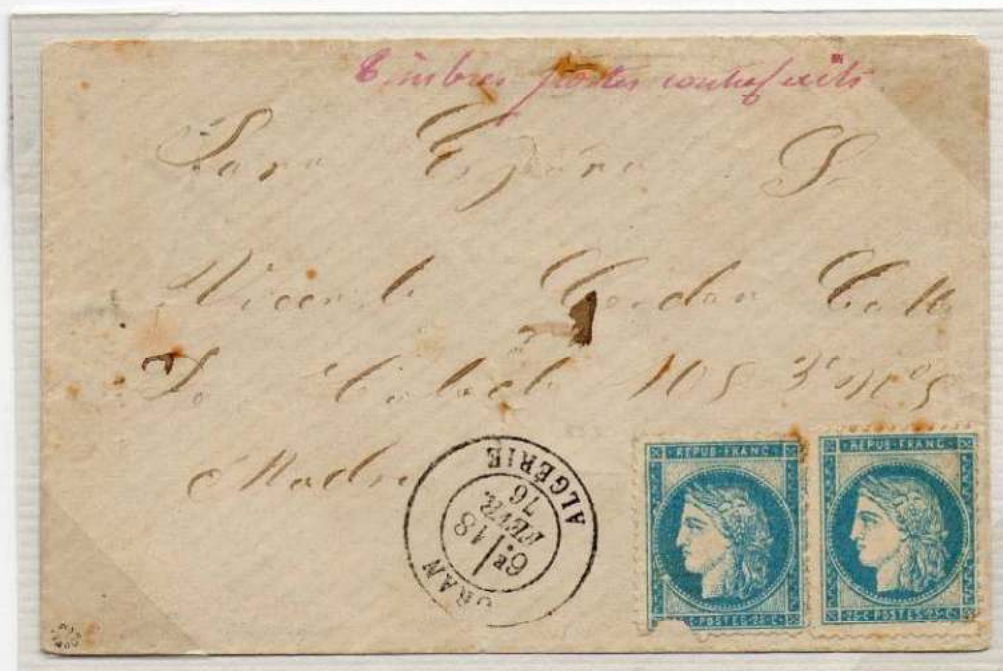 Timbres postes contrefaits
Para España S.
Vicente Calle
De 105 3º Nº 5
Madri
ORAN
6E 18
FEVR.
76
ALGÉRIE
REPUB·FRANC·
25·C·POSTES·25·C·
REPUB·FRANC·
25·C·POSTES·25·C·